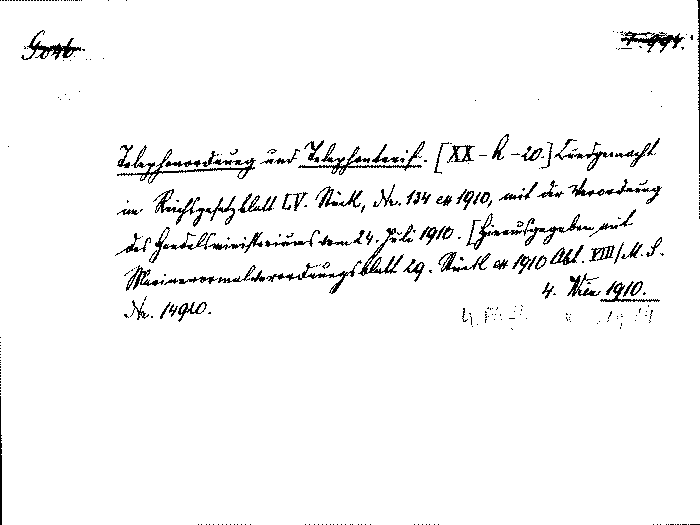 Telephonordnung und Telephontarif. [XX-K-20.] Kundgemacht
im Reichsgesetzblatt LV. Stück, Nr. 134 ex 1910, mit der Verordnung
des Handelsministeriums vom 24. Juli 1910. [Hinausgegeben mit
Marinenormalverordnungsblatt 29. Stück ex 1910 Abt. VIII/M.S.
Nr. 14910.
4. Wien 1910.